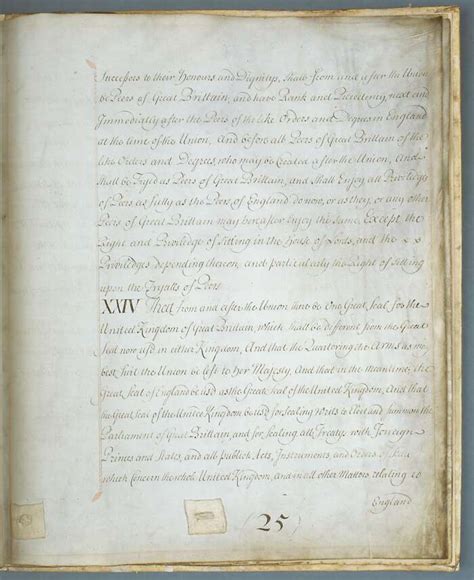 Successors to their Honours and Dignitys, shall from and after the Union
be Peers of Great Brittain, and have Rank and Precedency next and
Immediatly after the Peers of the like Orders and Degrees in England
at the time of the Union, And before all Peers of Great Brittain of the
like Orders and Degrees, who may be Created after the Union, And
shall be Tryed as Peers of Great Brittain, and shall Enjoy all Priviledges
of Peers, as fully as the Peers of England do now, or as they, or any other
Peers of Great Brittain may hereafter Enjoy the same, Except the
Right and Priviledge of Sitting in the House of Lords, and the
Priviledges depending thereon, and particularly the Right of Sitting
upon the Tryalls of Peers.
XXIV That from and after the Union there be One Great Seal for the
United Kingdom of Great Brittain, which shall be different from the Great
Seal now us'd in either Kingdom, And that the Quartering the Arms as may
best suit the Union be left to her Majesty, And that in the meantime, the
Great Seal of England be us'd as the Great Seal of the United Kingdom, And that
the Great Seal of the United Kingdom be us'd for Sealing Writs to Elect and summon the
Parliament of Great Brittain, and for sealing all Treatys with Foreign
Princes and States, and all publick Acts, Instruments, and Orders of State
which Concern the whole United Kingdom, and in all other Matters relating to
England
(25)